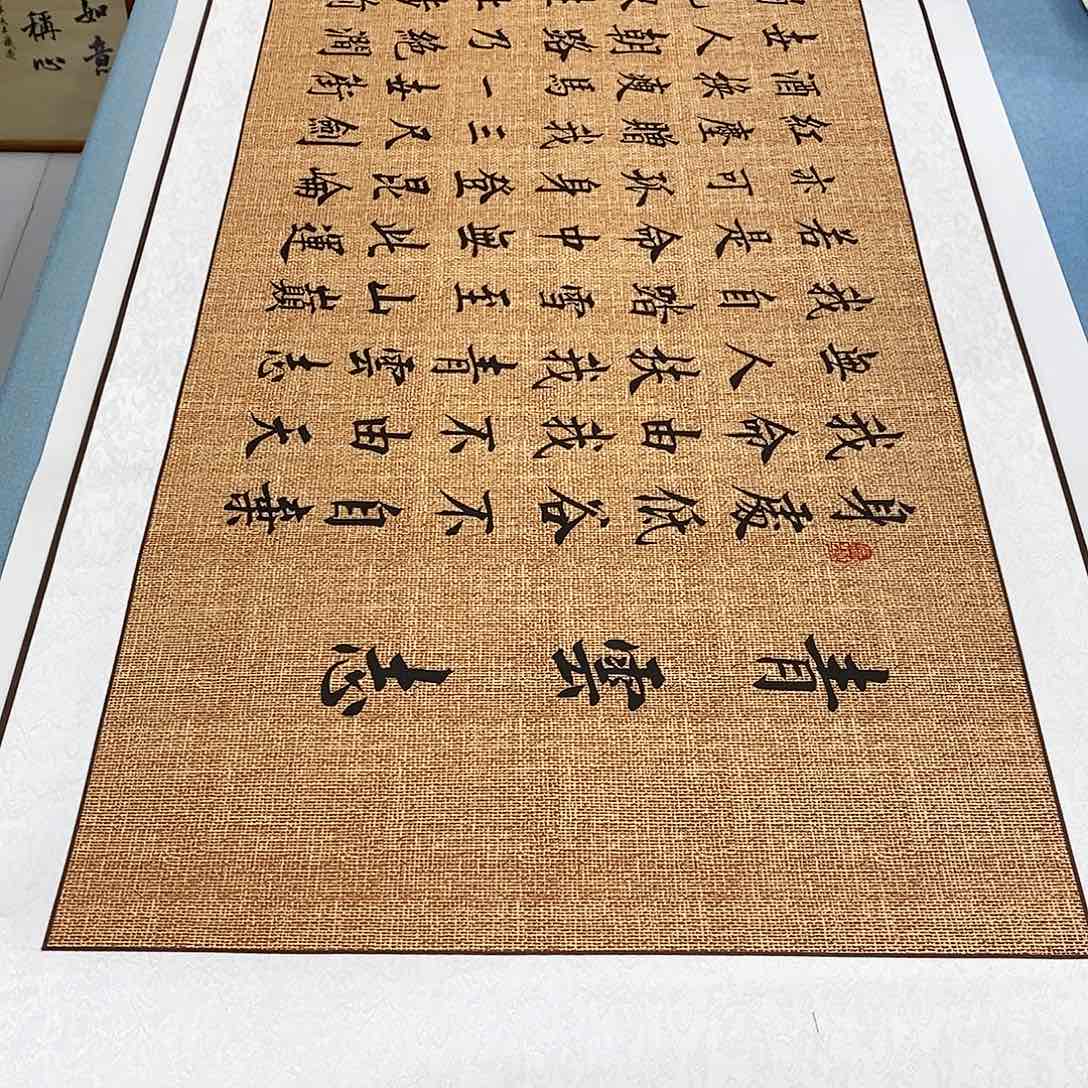 青雲志
身處低谷不自棄
我命由我不由天
無人扶我青雲志
我自踏雪至山巔
若是命中無此運
亦可孤身登昆崘
紅塵贈我三尺劍
酒換瘦馬一
人朝路乃絕澗
如意
稱心